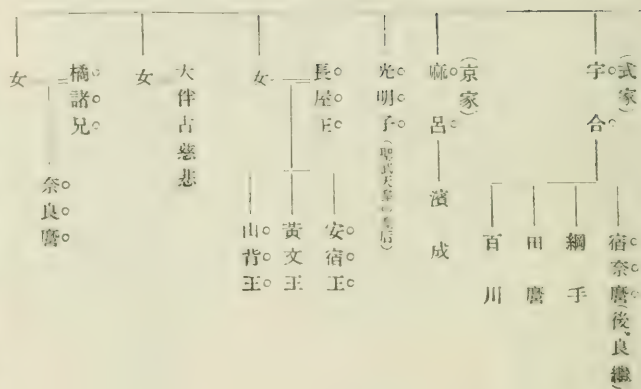 (式家)
宇合
宿奈麿(後、良繼)
綱手
田麿
百川
(京家)
麻呂
濱成
光明子(聖武天皇の皇后)
長屋王
女
安宿王
黃文王
山背王
大伴古慈悲
女
橘諸兄
女
奈良麿